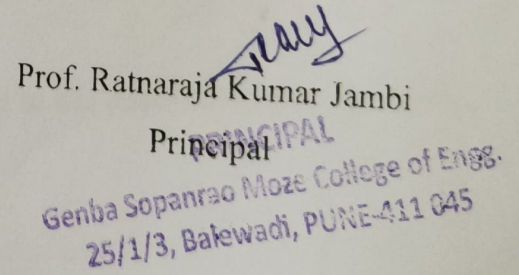 Prof. Ratnaraja Kumar Jambi
Principal
PRINCIPAL
Genba Sopanrao Moze College of Engg.
25/1/3, Balewadi, PUNE-411 045